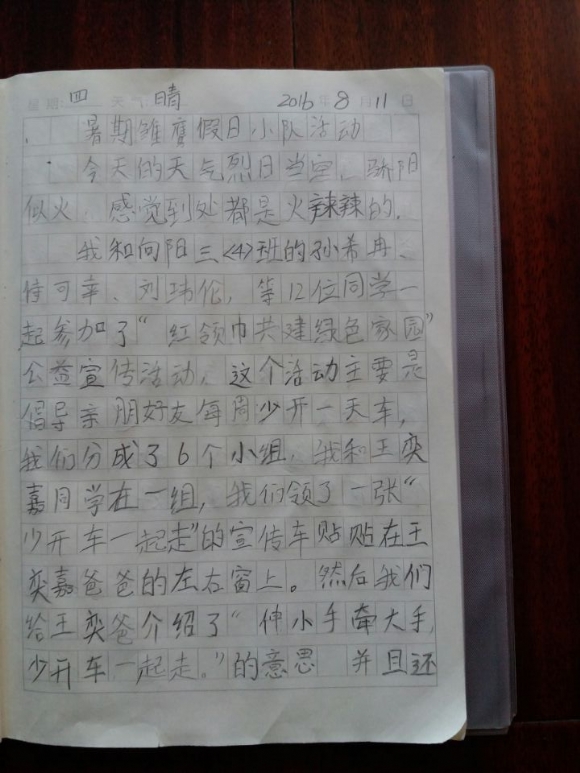 星期 四 天气 晴 2016年8月11日
暑期雏鹰假日小队活动
今天的天气烈日当空、骄阳
似火、感觉到处都是火辣辣的.
我和向阳三<4>班的孙希冉、
可幸、刘玮伦，等12位同学一
起参加了“红领巾共建绿色家园”
公益宣传活动，这个活动主要是
倡导亲朋好友每周少开一天车，
我们分成了6个小组，我和王奕
嘉同学在一组，我们领了一张“
少开车一起走”的宣传车贴贴在王
奕嘉爸爸的左右窗上。然后我们
给王奕爸介绍了“伸小手牵大手，
少开车，一起走。”的意思 并且还